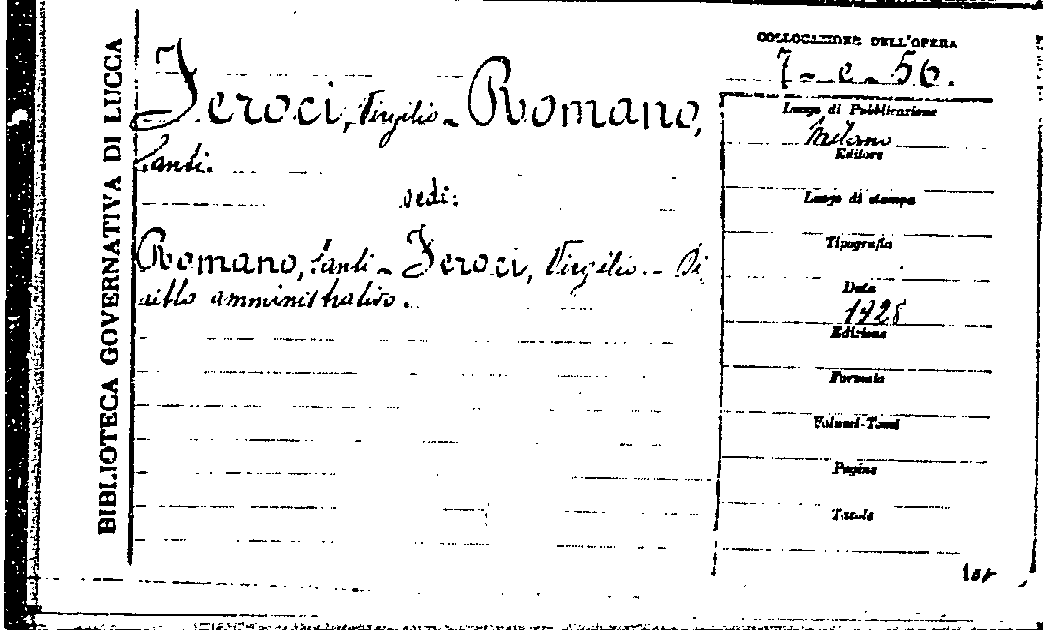 BIBLIOTECA GOVERNATIVA DI LUCCA
Feroci, Virgilio - Romano,
Santi.
vedi:
Romano, Santi - Feroci, Virgilio. - Di
ritto amministrativo.
COLLOCAZIONE DELL'OPERA
7 - e - 56.
Luogo di Pubblicazione
Milano
Editore
Luogo di stampa
Tipografia
Data
1928
Edizione
Formato
Volumi-Tomi
Pagine
Tavole